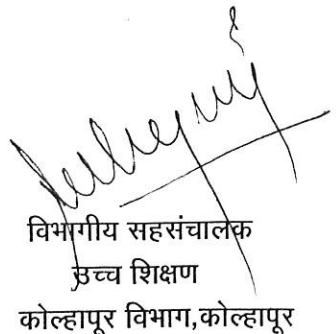 विभागीय सहसंचालक
उच्च शिक्षण
कोल्हापूर विभाग,कोल्हापूर